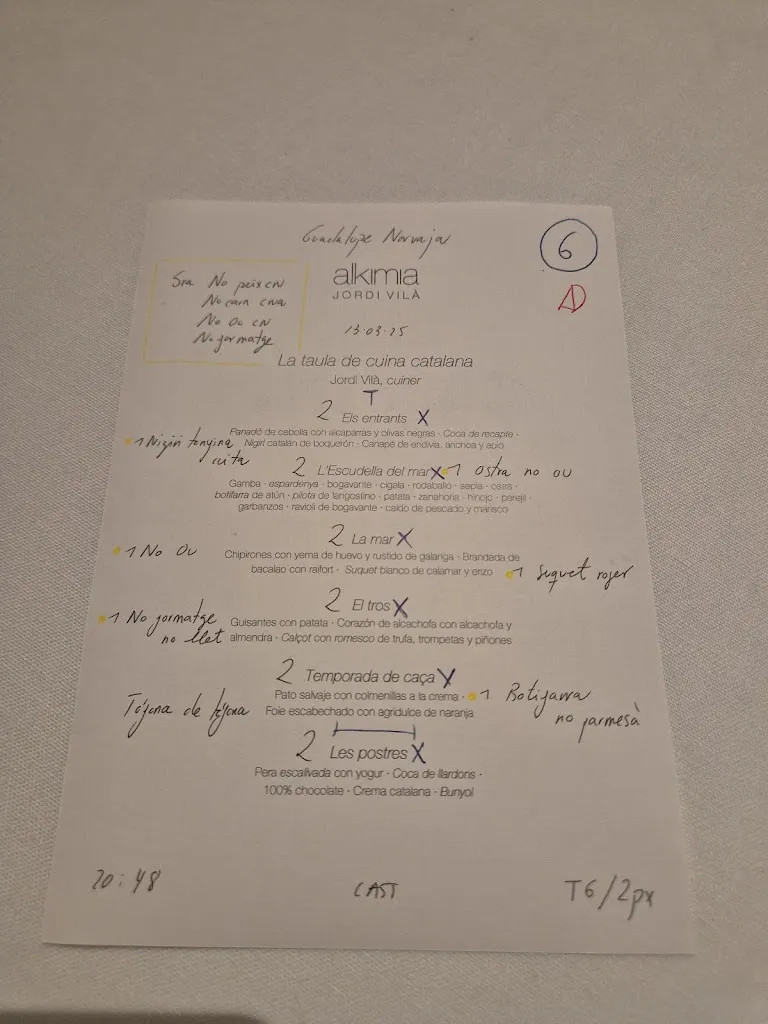 Guadalupe Narvaja
6
Sra No peix cru
No carn crua
No Ou cru
No formatge
alkimia
JORDI VILÀ
AD
13.03.25
La taula de cuina catalana
Jordi Vilà, cuiner
T
2 Els entrants X
Panadó de cebolla con alcaparras y olivas negras · Coca de recapte ·
1 Nigiri tonyina cuita
Nigiri catalán de boquerón · Canapé de endivia, anchoa y apio
2 L'Escudella del mar X 1 Ostra no ou
Gamba · espardenya · bogavante · cigala · rodaballo · sepia · ostra ·
botifarra de atún · pilota de langostino · patata · zanahoria · hinojo · perejil ·
garbanzos · ravioli de bogavante · caldo de pescado y marisco
2 La mar X
1 No Ou
Chipirones con yema de huevo y rustido de galanga · Brandada de
bacalao con raifort · Suquet blanco de calamar y erizo
1 Suquet roger
2 El tros X
1 No formatge
no llet
Guisantes con patata · Corazón de alcachofa con alcachofa y
almendra · Calçot con romesco de trufa, trompetas y piñones
2 Temporada de caça X
Pato salvaje con colmenillas a la crema · 1 Botifarra
no parmesà
Foie escabechado con agridulce de naranja
2 Les postres X
Pera escalivada con yogur · Coca de llardons ·
100% chocolate · Crema catalana · Bunyol
20:48
CAST
T6/2px